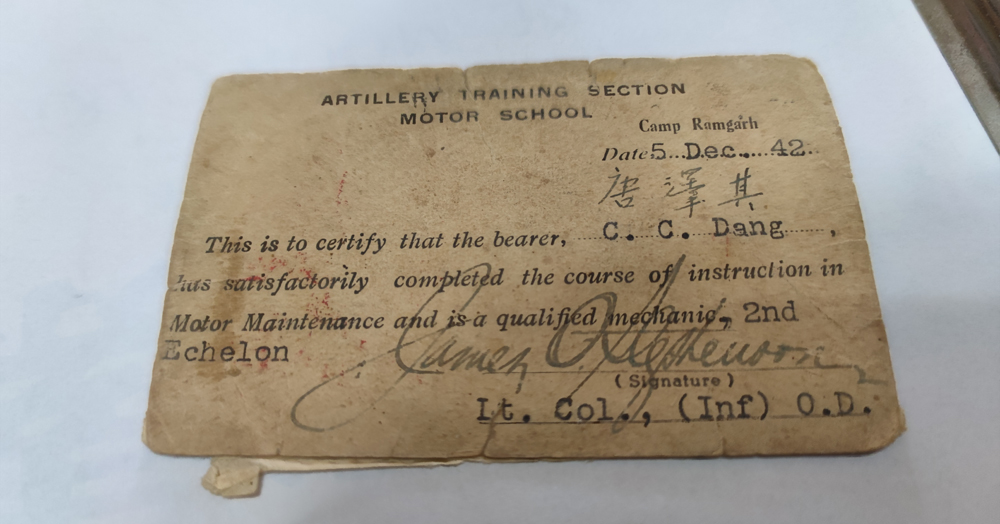 ARTILLERY TRAINING SECTION
MOTOR SCHOOL
Camp Ramgarh
Date 5 Dec. 42
唐澤其
This is to certify that the bearer, C. C. Dang,
has satisfactorily completed the course of instruction in
Motor Maintenance and is a qualified mechanic, 2nd
Echelon
James
(Signature)
Lt. Col., (Inf) O.D.